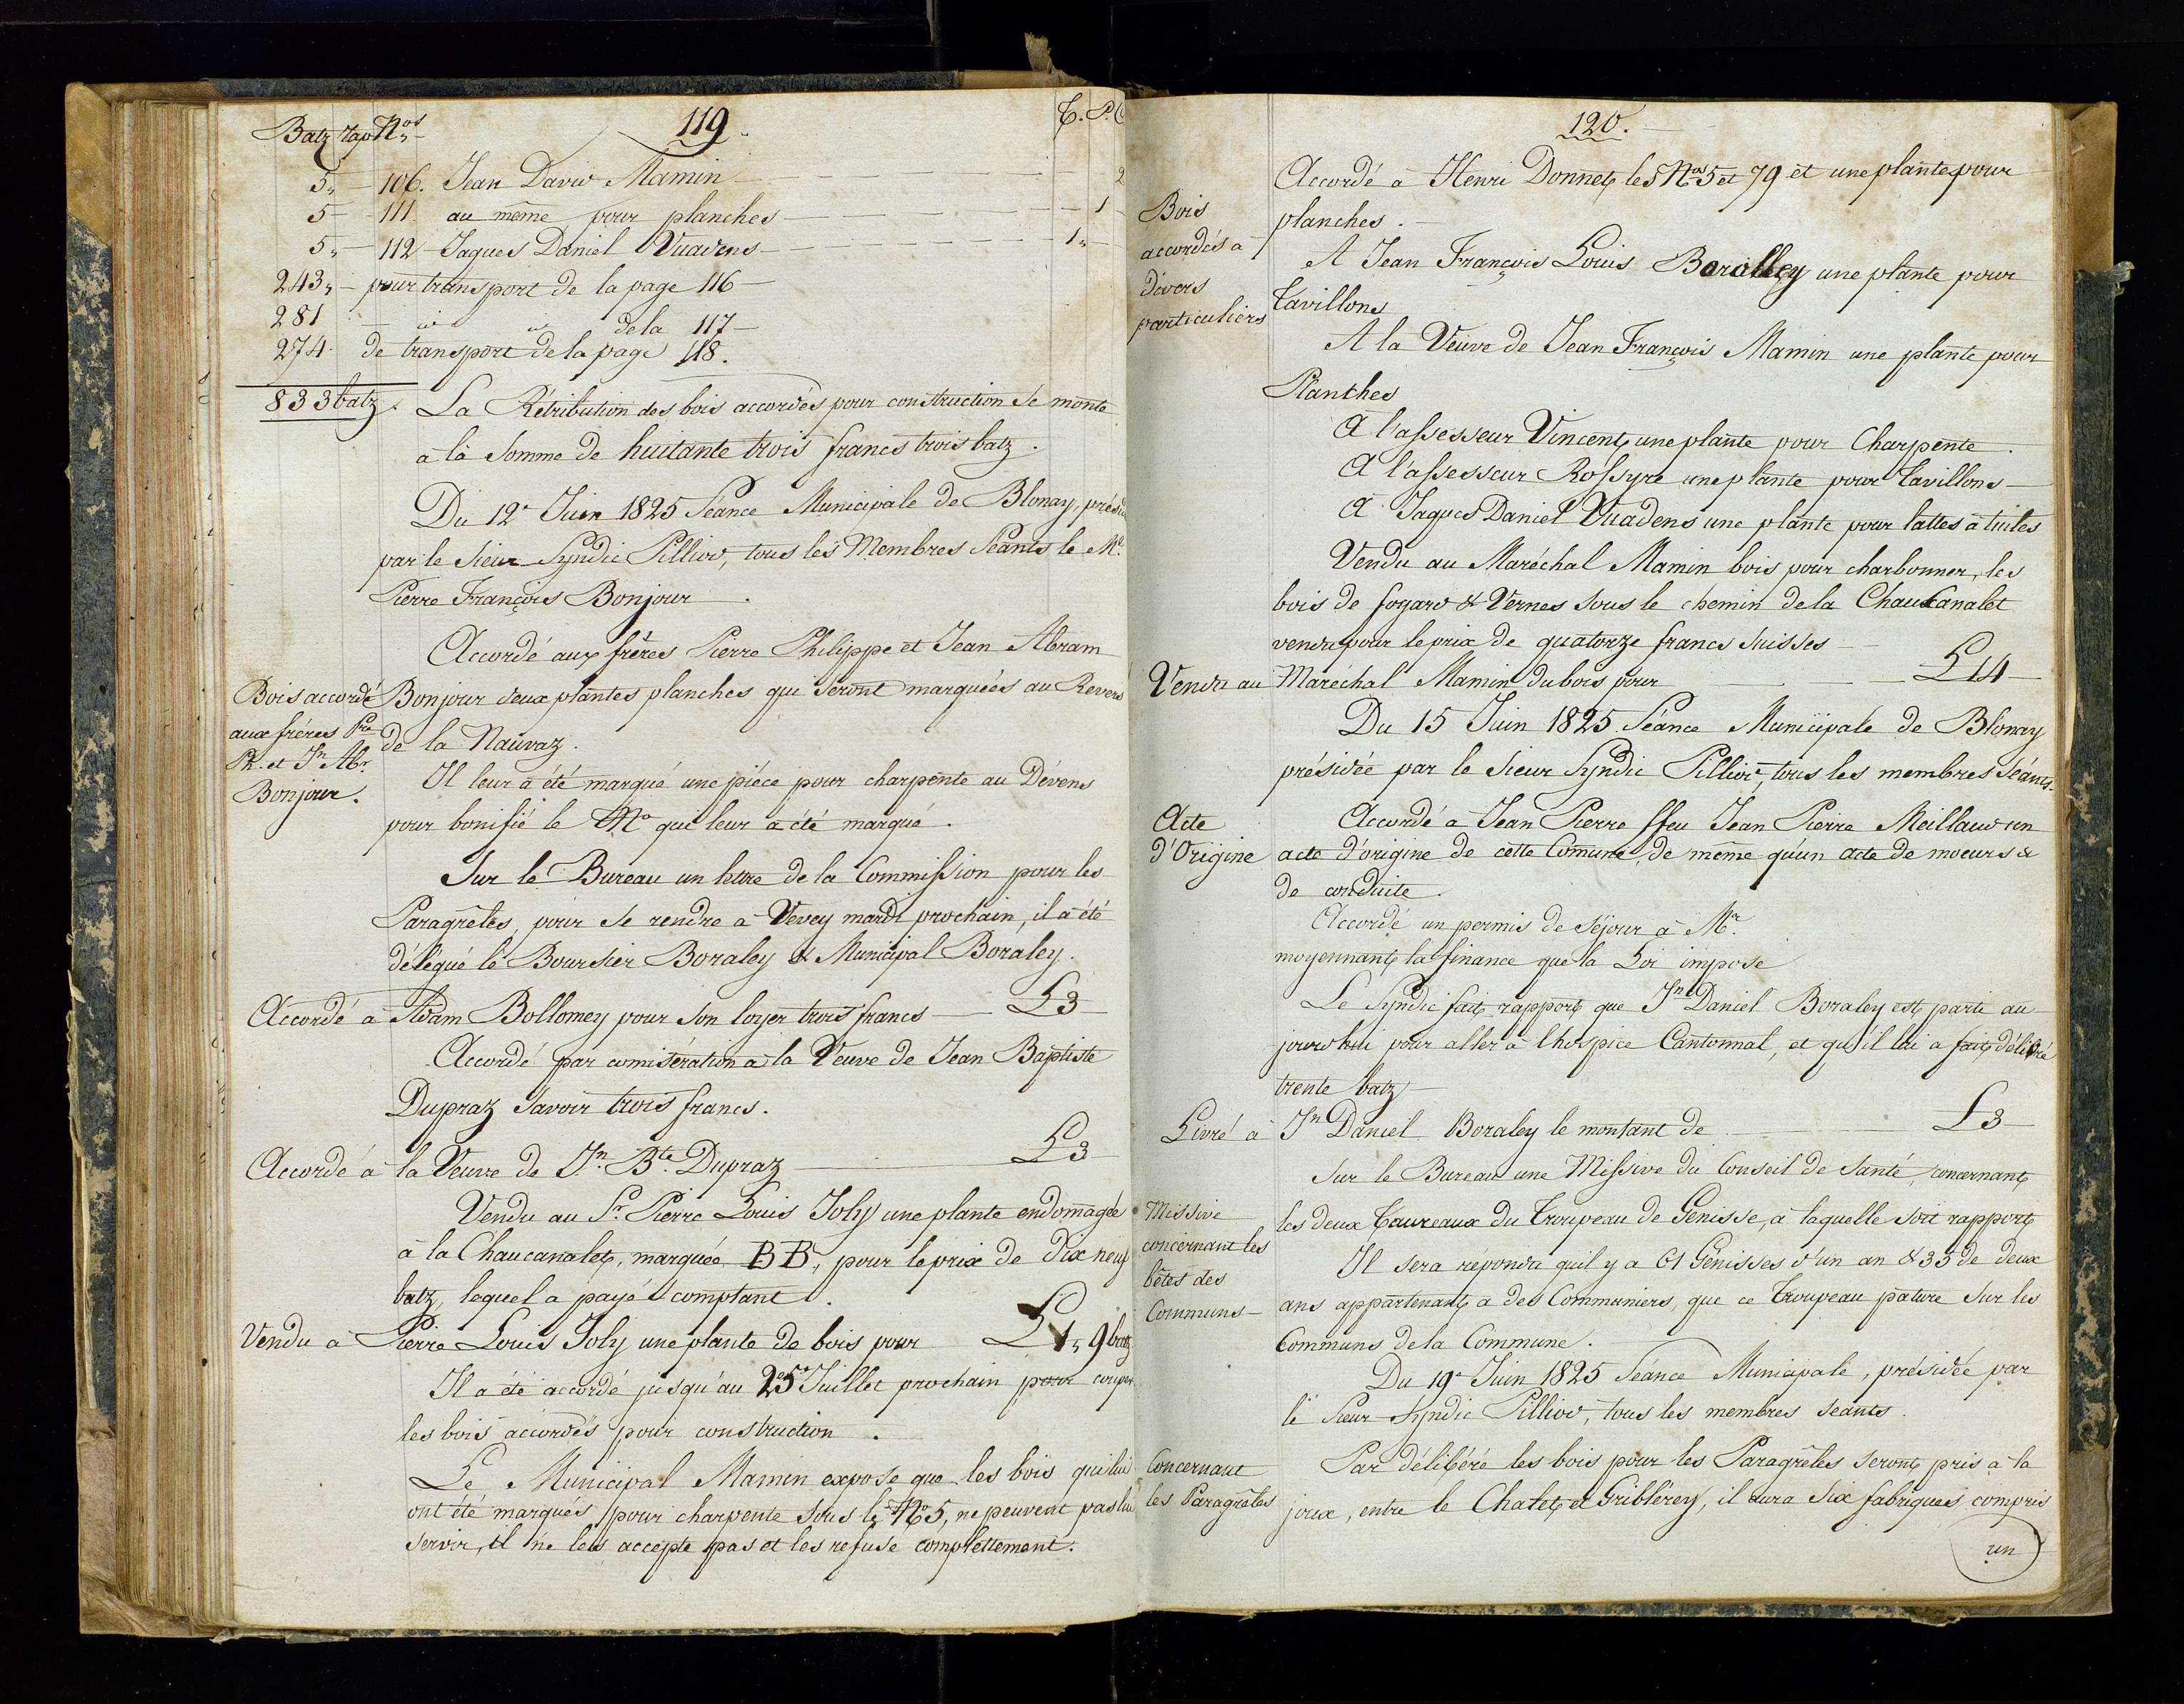 119
Batz rap Nos T. P.
5 106. Jean David Mamin 2
5 111 au même pour planches 1
5 112 Jaques Daniel Vuadens 1
243 pour transport de la page 116
281 id id de la 117
274 de transport de la page 118.
833 batz. La Rétribution des bois accordés pour construction se monte
a la Somme de huitante trois francs trois batz.
Du 12e Juin 1825 Séance Municipale de Blonay, présid
par le Sieur Syndic Pilliod, tous les Membres Séants le Ml
Pierre François Bonjour.
Accordé aux frères Pierre Philippe et Jean Abram
Bois accordé
aux frères Pre
Ph. et Jn Abr
Bonjour.
Bonjour deux plantes planches qui seront marquées au Revers
de la Nauvaz.
Il leur a été marqué une piéce pour charpente au Dévens
pour bonifié le No qui leur a été marqué.
Sur le Bureau un lettre de la Commission pour les
Paragrêles, pour se rendre a Vevey mardi prochain, il a été
délégué le Boursier Boraley & Municipal Boraley.
Accordé a Adam Bollomey pour son loyer trois francs L 3
Accordé par comisération a la Veuve de Jean Baptiste
Dupraz savoir trois francs.
Accordé a la Veuve de Jn. Bte. Dupraz L 3
Vendu au Sr. Pierre Louis Joly une plante endomagée
à la Chaucanalet, marquée BB, pour le prix de Dix neuf
batz, lequel a payé comptant.
Vendu a Pierre Louis Joly une plante de bois pour L 1 9 batz
Il a été accordé jusqu'au 25e Juillet prochain pour couper
les bois accordés pour construction.
Le Municipal Mamin expose que les bois qui lui
ont été marqués pour charpente sous le No 5, ne peuvent pas lui
servir, il ne les accepte pas et les refuse complettement.
120.
Accordé a Henri Donnet les Nos 5 et 79 et une plante pour
planches.
Bois
accordés a
divers
particuliers
A Jean François Louis Borolley une plante pour
Tavillons
A la Veuve de Jean François Mamin une plante pour
Planches
A l'assesseur Vincent une plante pour Charpente.
A l'assesseur Rossyre une plante pour tavillons
A Jaques Daniel Vuadens une plante pour lattes à tuiles
Vendu au Maréchal Mamin bois pour charbonner, les
bois de fogard & Vernes sous le chemin de la Chaucanalet
vendu pour le prix de quatorze francs suisses
Vendu au Maréchal Mamin du bois pour L 14
Du 15 Juin 1825 Séance Municipale de Blonay
présidée par le Sieur Syndic Pilliod, tous les membres Séants.
Acte
d'Origine
Accordé a Jean Pierre ffeu Jean Pierre Meillaud un
acte d'origine de cette Comune, de même qu'un acte de moeurs &
de conduite
Accordé un permis de séjour a Mr.
moyennant la finance que la Loi impose
Le Syndic fait rapport que Jn Daniel Boraley est parti au
jourdhui pour aller à lhospice Cantonnal, et qu'il lui a fait délivré
trente batz
Livré a Jn Daniel Boraley le montant de L 3
Sur le Bureau une Missive du Conseil de santé, concernant
Missive
concernant les
bêtes des
Communs
les deux Taureaux du Troupeau de Génisse, à laquelle soit rapport
Il sera répondu quil y a 61 Génisses d'un an & 35 de deux
ans appartenant a des Communiers, que ce Troupeau pature sur les
Communs de la Commune.
Du 19e Juin 1825 Séance Municipale, présidée par
le Sieur Syndic Pilliod, tous les membres séants.
Concernant
les Paragrêles
Par délibéré les bois pour les Paragrêles seront pris a la
joux, entre le Chalet et Griblérey, il aura six fabriques compris
un